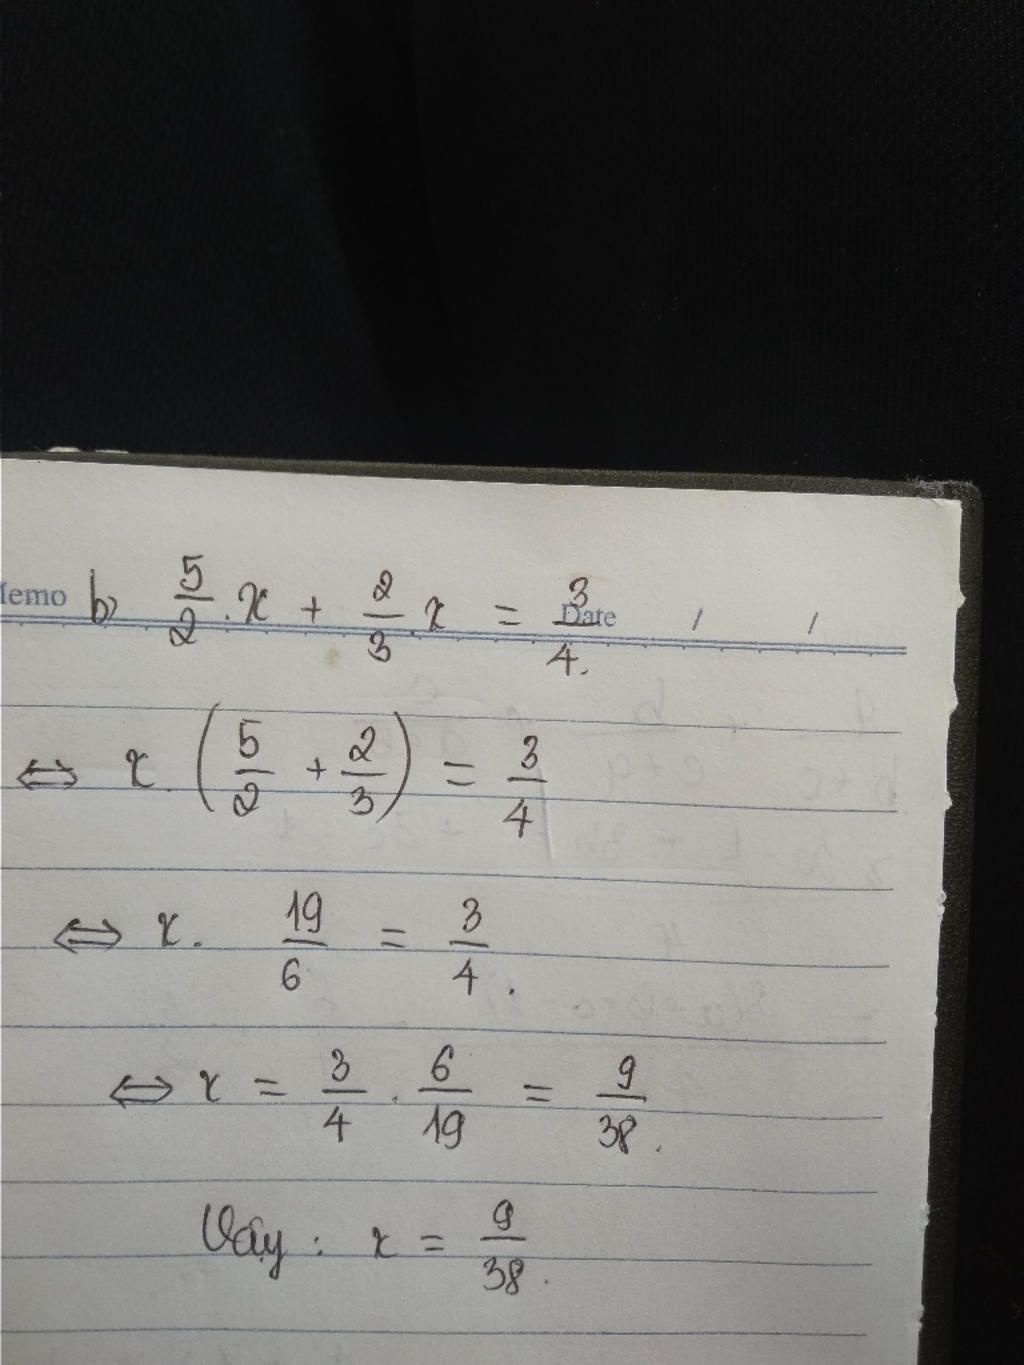 Memo b) 5/2 . x + 2/3 . x = 3/4. Date / /
⇔ x . (5/2 + 2/3) = 3/4
⇔ x . 19/6 = 3/4.
⇔ x = 3/4 . 6/19 = 9/38.
Vậy : x = 9/38.